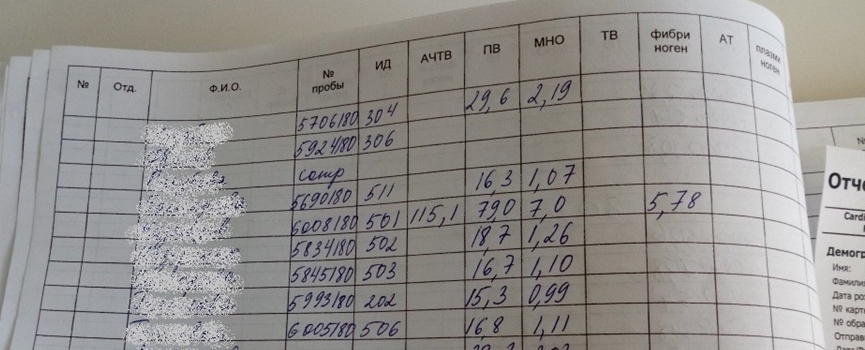 № Отд. Ф.И.О. № пробы ИД АЧТВ ПВ МНО ТВ фибри ноген АТ плазми ноген
5706180 304 29,6 2,19
5924180 306
сотр
5690180 511 16,3 1,07
6008180 501 115,1 79,0 7,0 5,78
5834180 502 18,7 1,26
5845180 503 16,7 1,10
5993180 202 15,3 0,99
6005180 506 16,8 1,11
Отче
Cardi
Демогр
Имя:
Фамилия
Дата ро
№ карт
№ обра
Отправ